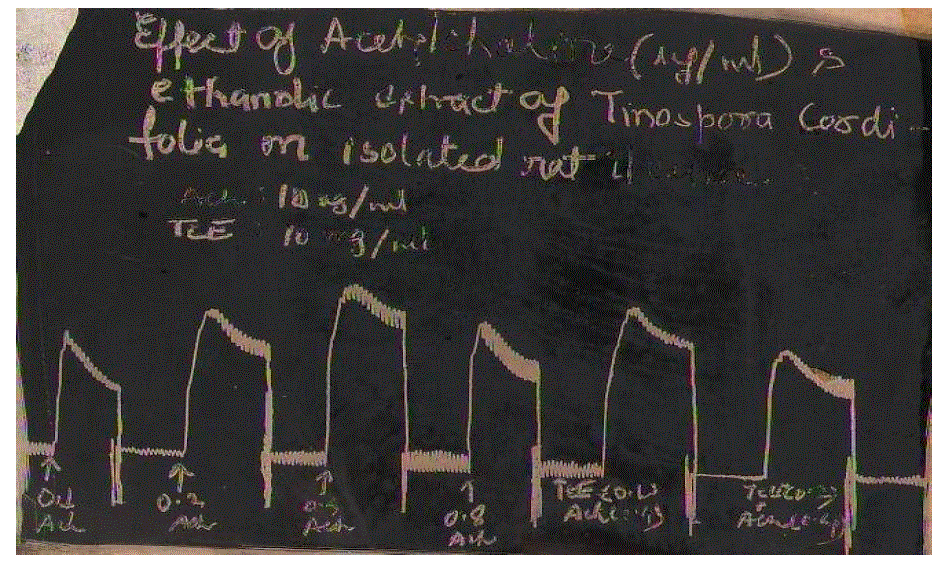 Effect of Acetylcholine (ug/ml) &
ethanolic extract of Tinospora Cordi-
folia on isolated rat ileum.
Ach : 10 ug/ml
TCE : 10 mg/ml
0.1 Ach
0.2 Ach
Ach
0.8 Ach
TCE (0.1) Ach
Ach